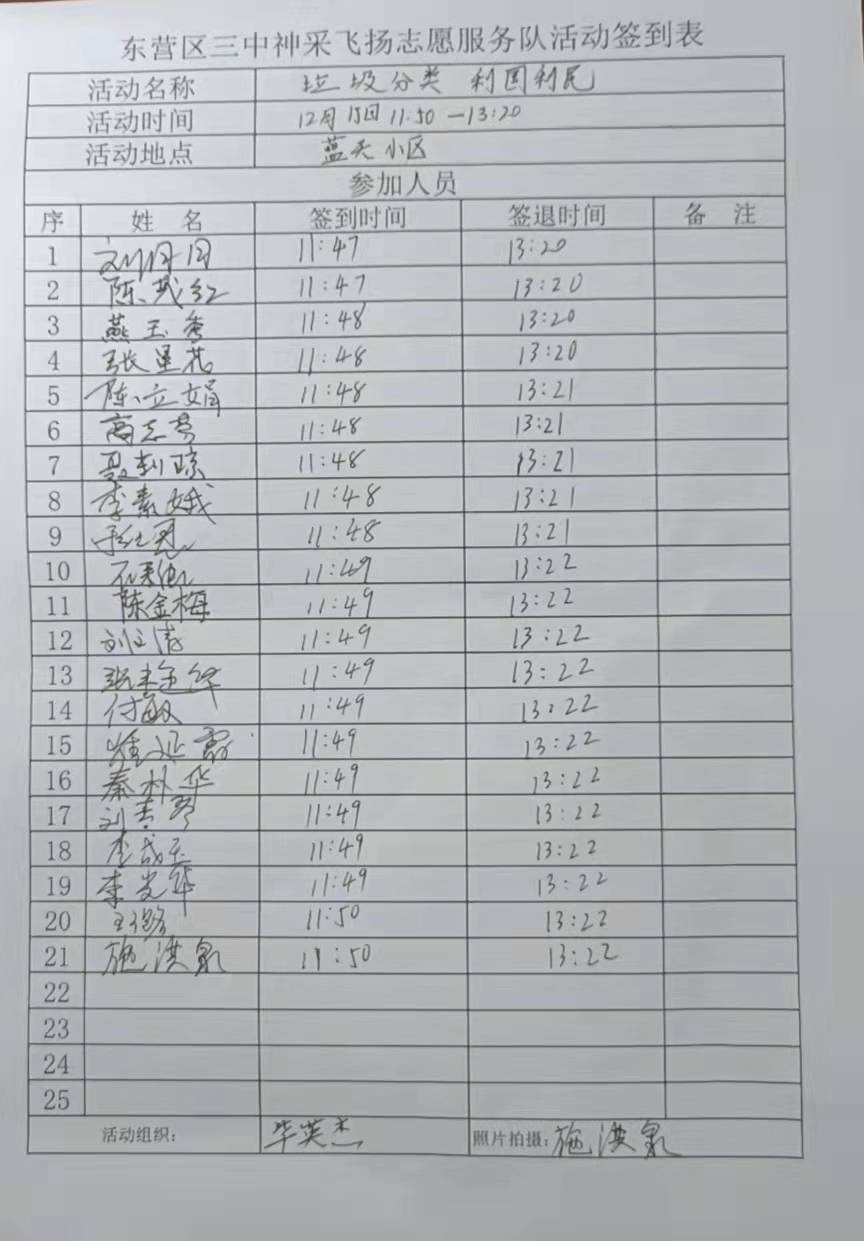 东营区三中神采飞扬志愿服务队活动签到表
活动名称 垃圾分类 利国利民
活动时间 12月15日 11:50—13:20
活动地点 蓝天小区
参加人员
序 姓 名 签到时间 签退时间 备 注
1 11:47 13:20
2 11:47 13:20
3 燕玉秀 11:48 13:20
4 张莲花 11:48 13:20
5 陈立娟 11:48 13:21
6 11:48 13:21
7 11:48 13:21
8 李素娥 11:48 13:21
9 11:48 13:21
10 11:49 13:22
11 陈金梅 11:49 13:22
12 刘文涛 11:49 13:22
13 11:49 13:22
14 付敏 11:49 13:22
15 11:49 13:22
16 秦朴华 11:49 13:22
17 11:49 13:22
18 李成玉 11:49 13:22
19 李光华 11:49 13:22
20 王璐 11:50 13:22
21 施洪泉 11:50 13:22
22
23
24
25
活动组织： 毕英杰 照片拍摄：施洪泉